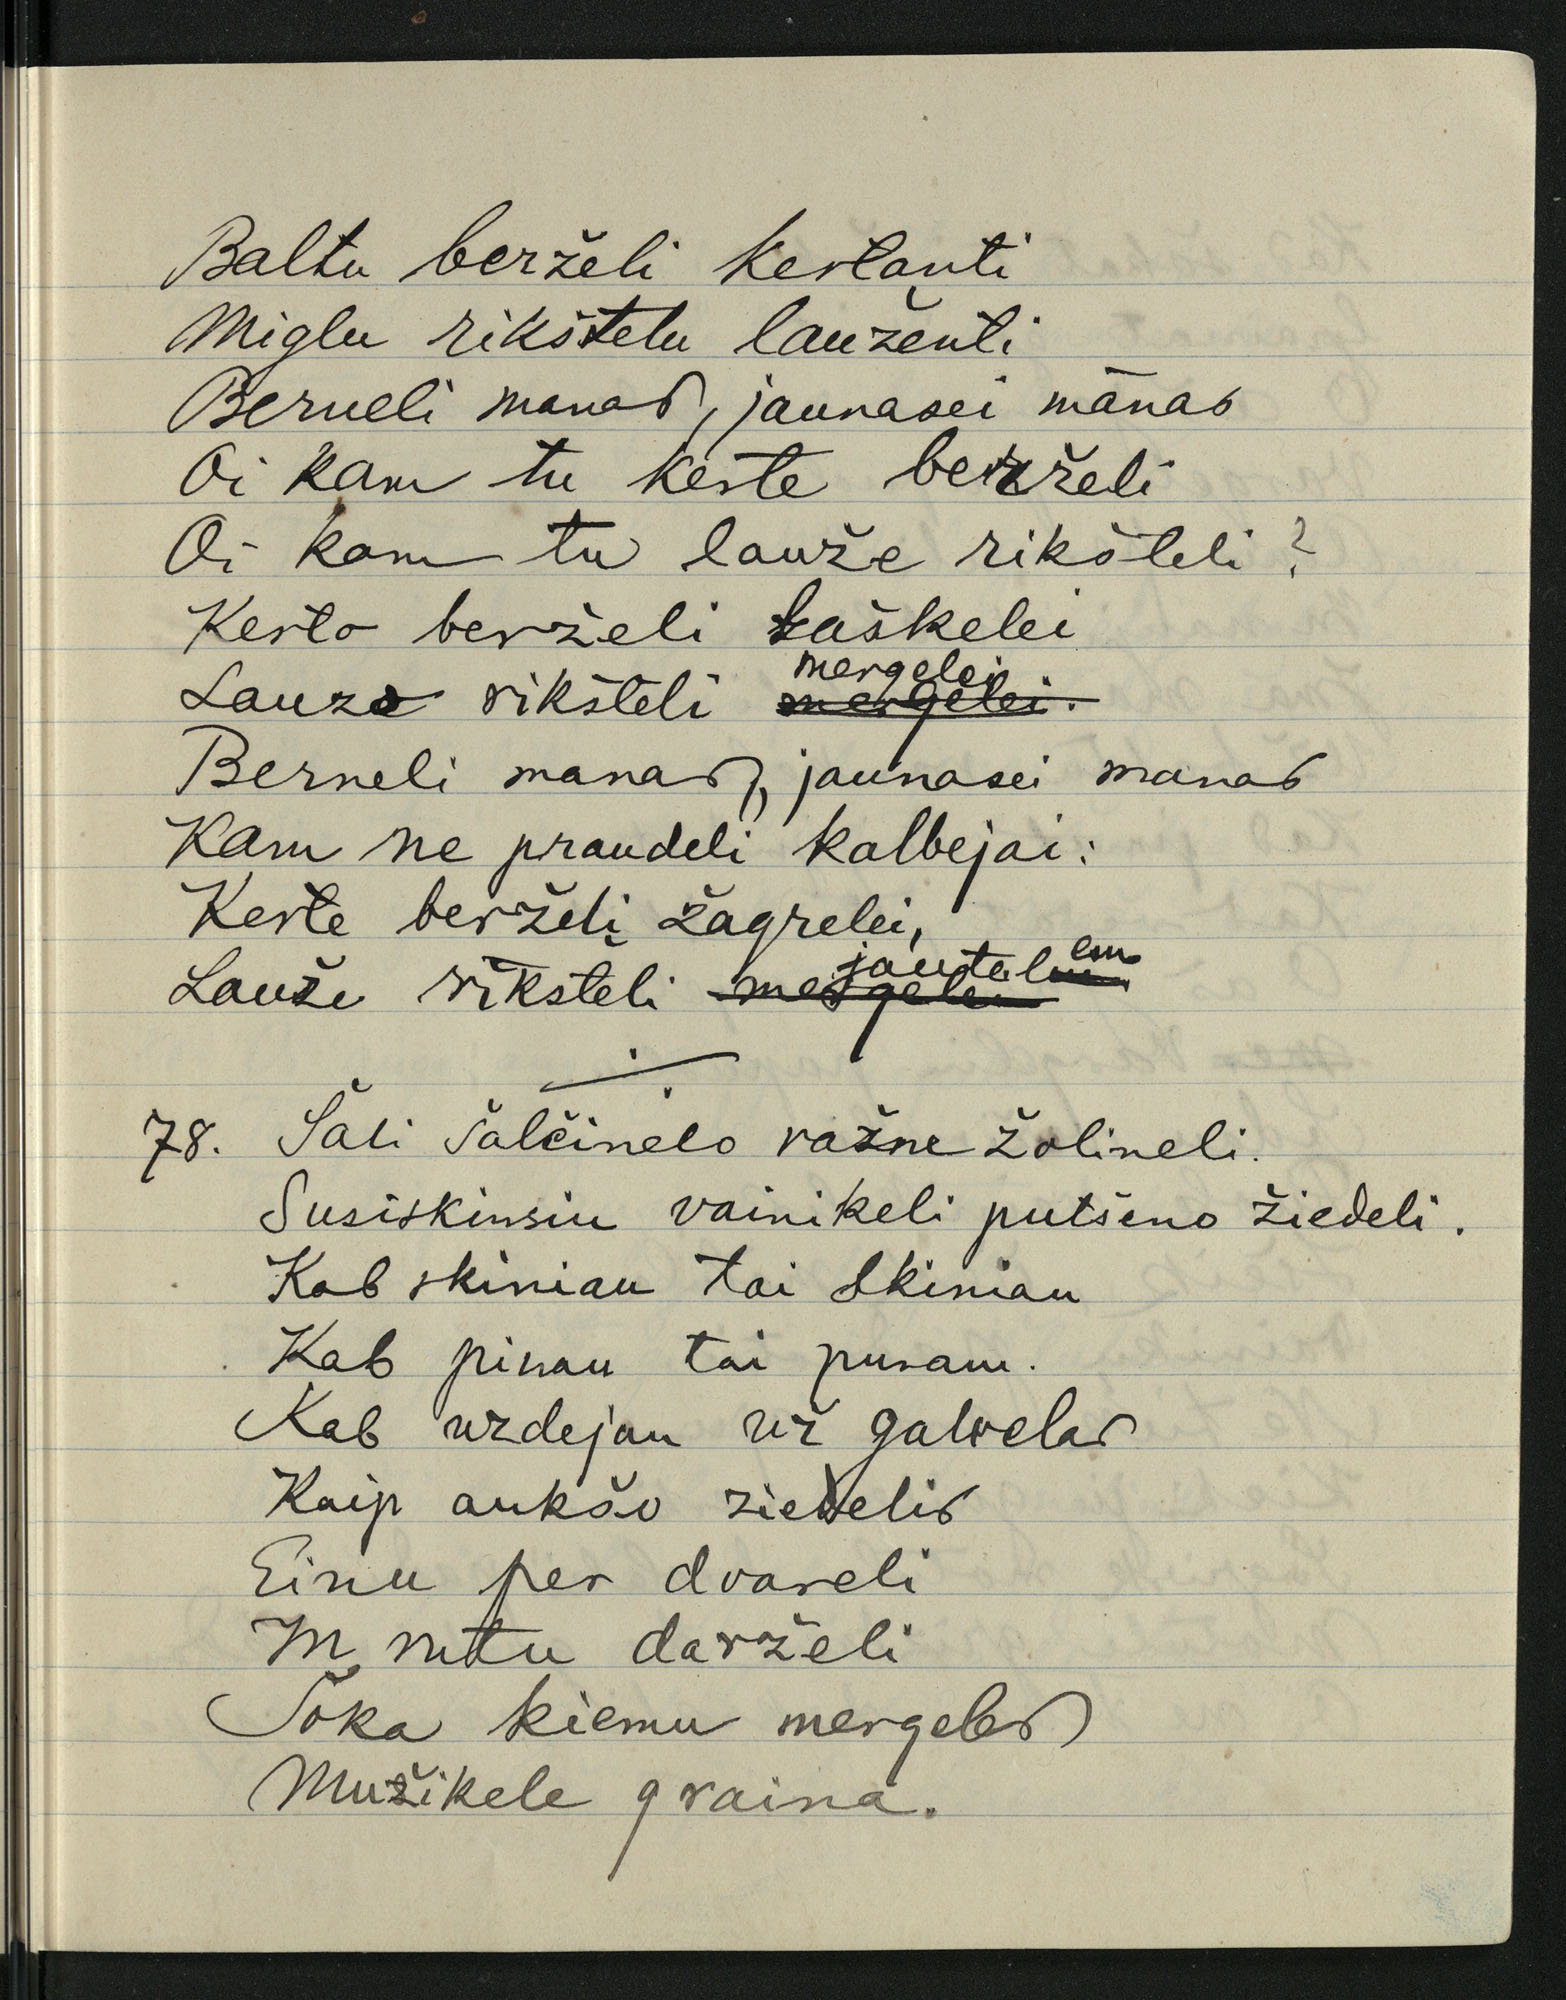 Baltu berželi kertanti
Miglu rikštelu lauženti
Berneli manas, jaunasei mānas
Oi kam tu kerte berželi
Oi kam tu lauže rikšteli?
Kerto berželi kaškelei
Lauzo rikšteli mergelei mergelei.
Berneli manas, jaunasei manas
Kam ne praudeli kalbejai:
Kerte berželi žagrelei,
Lauže rīksteli mergelei jautelem
78. Šali šalčinelo važne žolineli.
Susiskinsiu vainikeli putšeno žiedeli.
Kab skiniau tai skiniau
Kab pinau tai punau.
Kab uzdejau už galvelas
Kaip aukšo ziedelis
Einu per dvareli
In rutu darželi
Šoka kiemu mergeles
Mužikele graina.